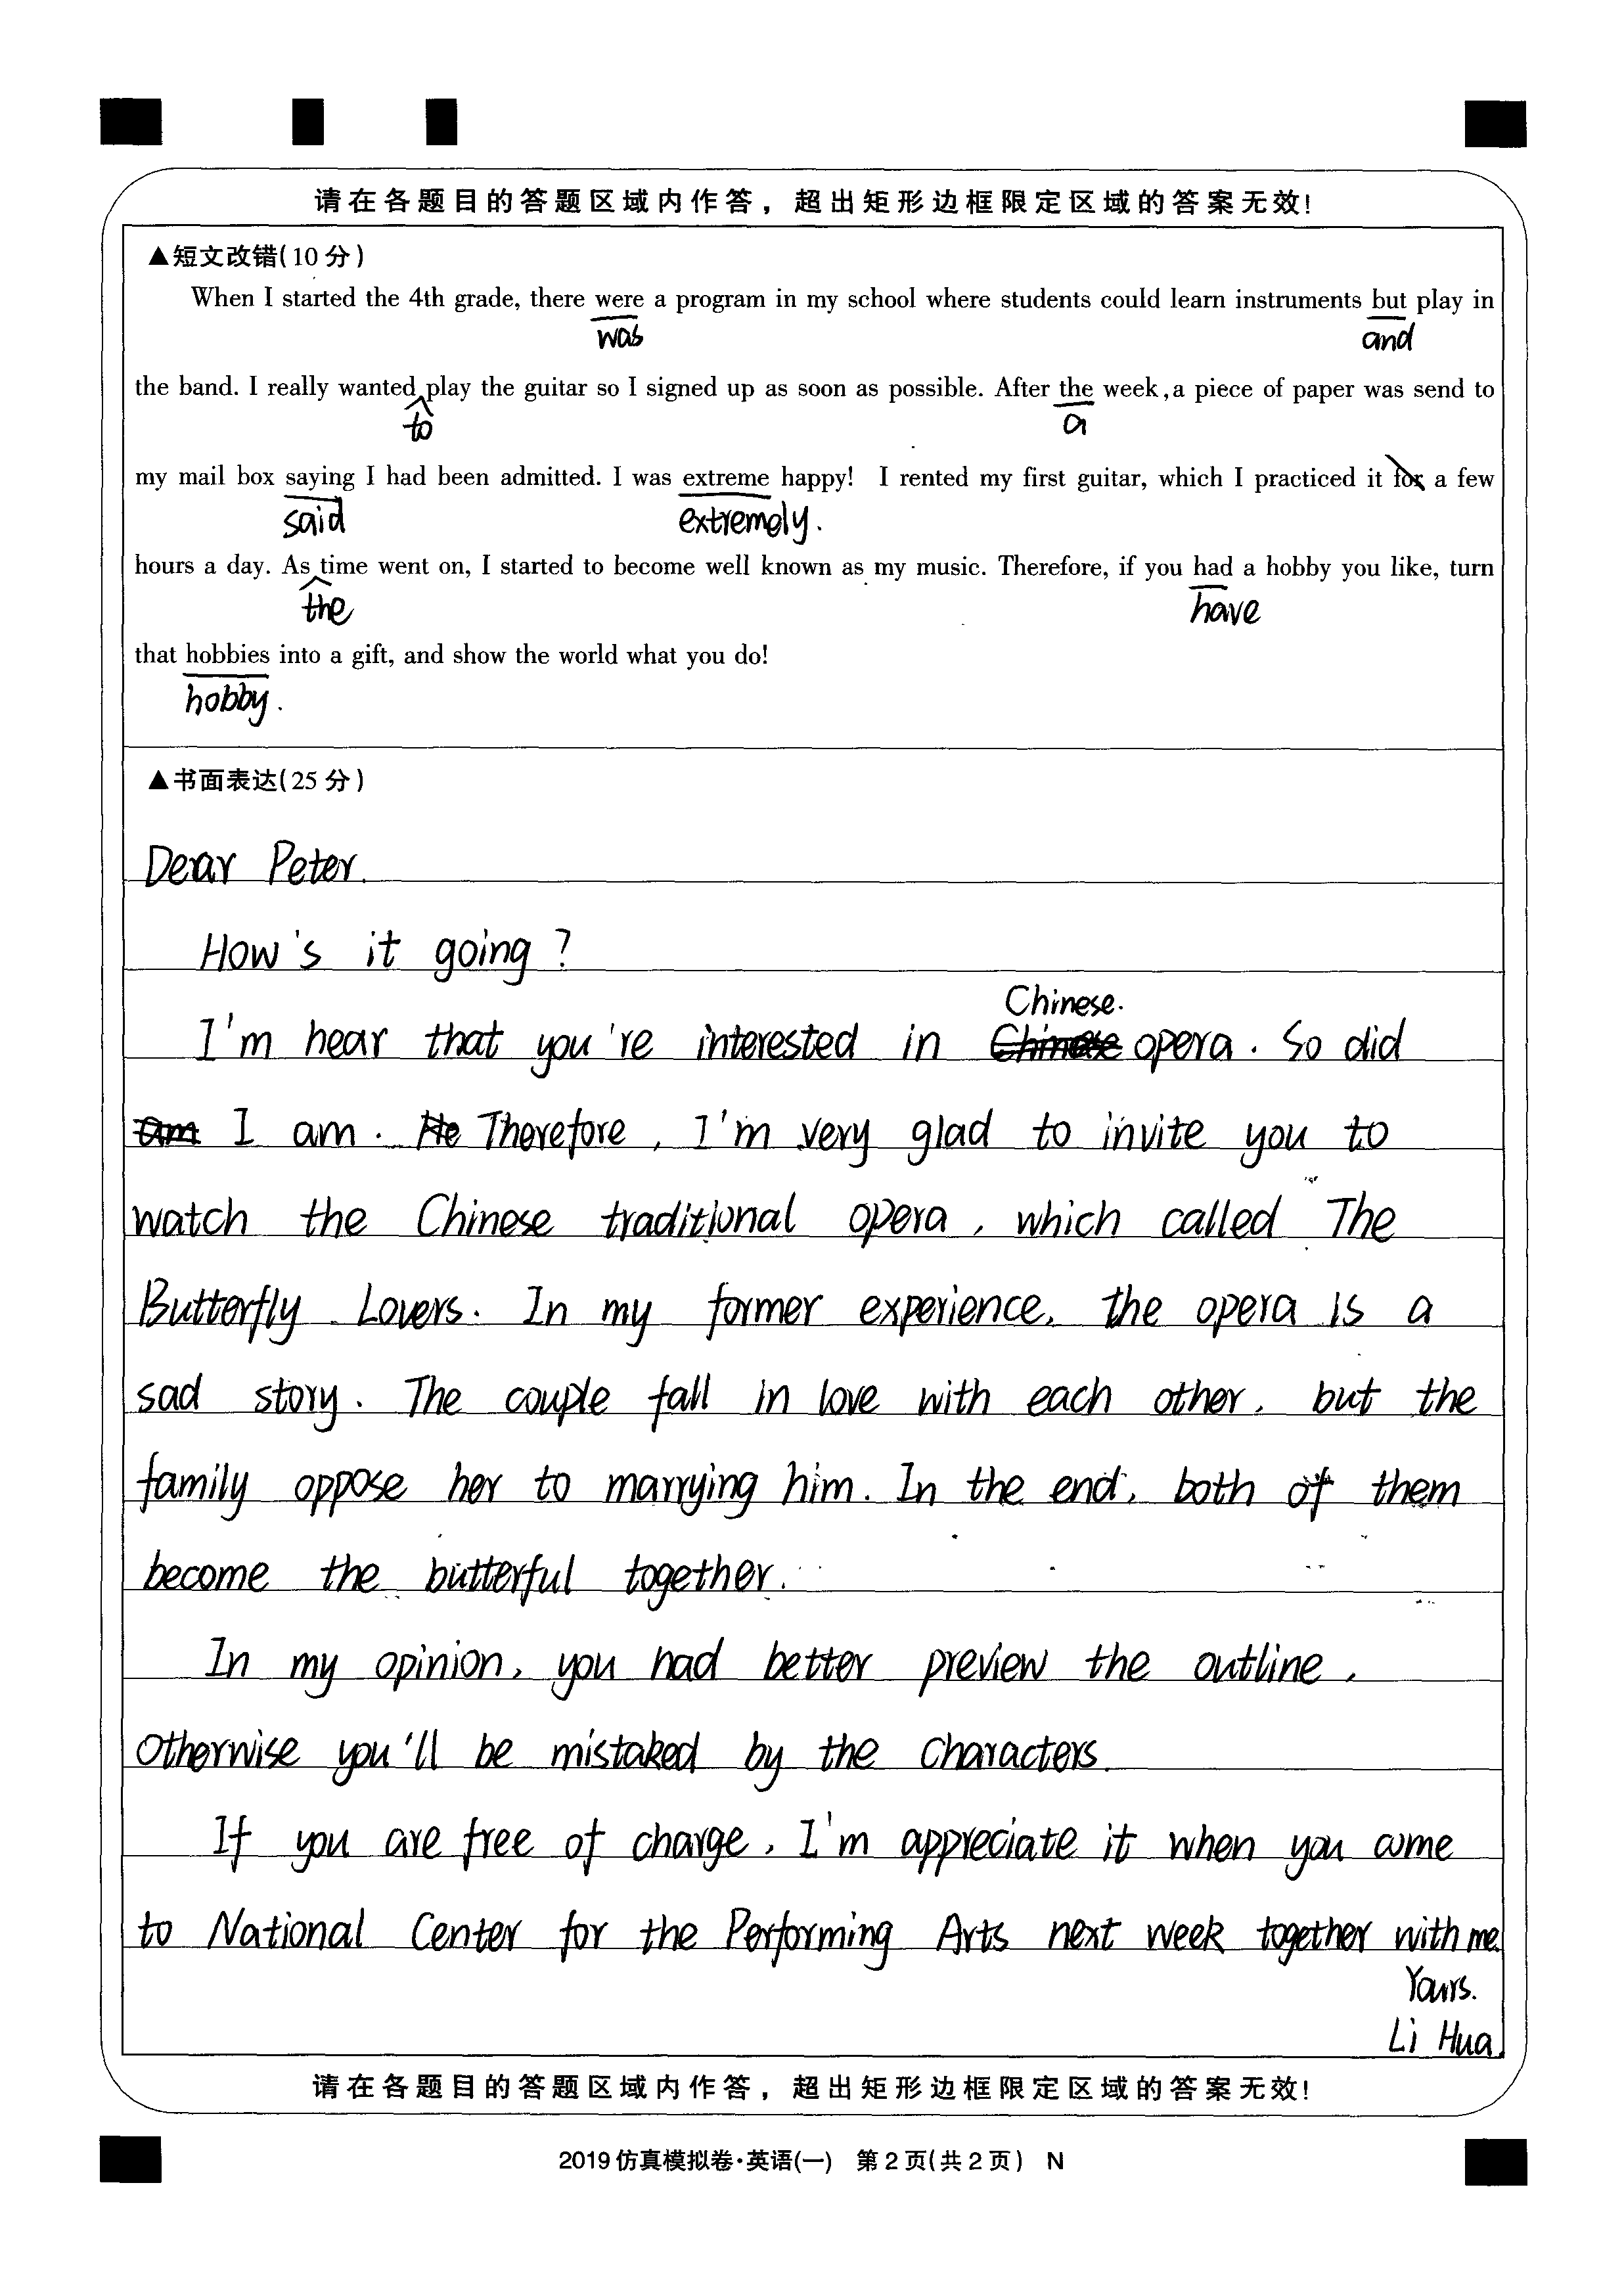 请在各题目的答题区域内作答，超出矩形边框限定区域的答案无效!
▲短文改错(10分)
When I started the 4th grade, there were a program in my school where students could learn instruments but play in
was and
the band. I really wanted play the guitar so I signed up as soon as possible. After the week,a piece of paper was send to
to a
my mail box saying I had been admitted. I was extreme happy! I rented my first guitar, which I practiced it for a few
said extremely.
hours a day. As time went on, I started to become well known as my music. Therefore, if you had a hobby you like, turn
the have
that hobbies into a gift, and show the world what you do!
hobby.
▲书面表达(25分)
Dear Peter.
How's it going?
Chinese.
I'm hear that you're interested in Chinese opera. So did
am I am. He Therefore, I'm very glad to invite you to
watch the Chinese traditional opera, which called The
Butterfly Lovers. In my former experience, the opera is a
sad story. The couple fall in love with each other, but the
family oppose her to marrying him. In the end, both of them
become the butterful together.
In my opinion, you had better preview the outline,
Otherwise you'll be mistaked by the characters.
If you are free of charge, I'm appreciate it when you come
to National Center for the Performing Arts next week together with me.
Yours.
Li Hua.
请在各题目的答题区域内作答，超出矩形边框限定区域的答案无效!
2019仿真模拟卷·英语(一) 第2页(共2页) N